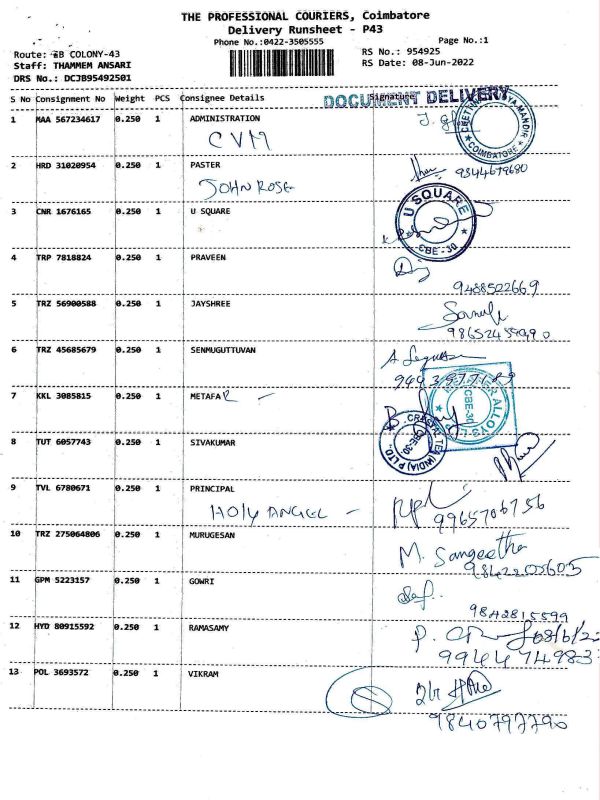 THE PROFESSIONAL COURIERS, Coimbatore
Delivery Runsheet - P43
Phone No.:0422-3505555
Page No.:1
Route: EB COLONY-43
RS No.: 954925
Staff: THAMMEM ANSARI
RS Date: 08-Jun-2022
DRS No.: DCJB95492501
S No Consignment No Weight PCS Consignee Details Signature
DOCUMENT DELIVERY
1 MAA 567234617 0.250 1 ADMINISTRATION
CVM
COIMBATORE
2 HRD 31020954 0.250 1 PASTER
JOHN ROSE
9344679680
3 CNR 1676165 0.250 1 U SQUARE
U SQUARE
CBE-30
4 TRP 7818824 0.250 1 PRAVEEN
9488522669
5 TRZ 56900588 0.250 1 JAYSHREE
6 TRZ 45685679 0.250 1 SENMUGUTTUVAN
7 KKL 3085815 0.250 1 METAFAR -
ALLOYS
CBE-30
8 TUT 6057743 0.250 1 SIVAKUMAR
TEA (INDIA) P LTD
CBE-30
9 TVL 6780671 0.250 1 PRINCIPAL
HOLY ANGEL -
9965706756
10 TRZ 275064806 0.250 1 MURUGESAN
M. Sangeetha
9842205605
11 GPM 5223157 0.250 1 GOWRI
9842815599
12 HYD 80915592 0.250 1 RAMASAMY
08/6/22
9944474983
13 POL 3693572 0.250 1 VIKRAM
9840797790